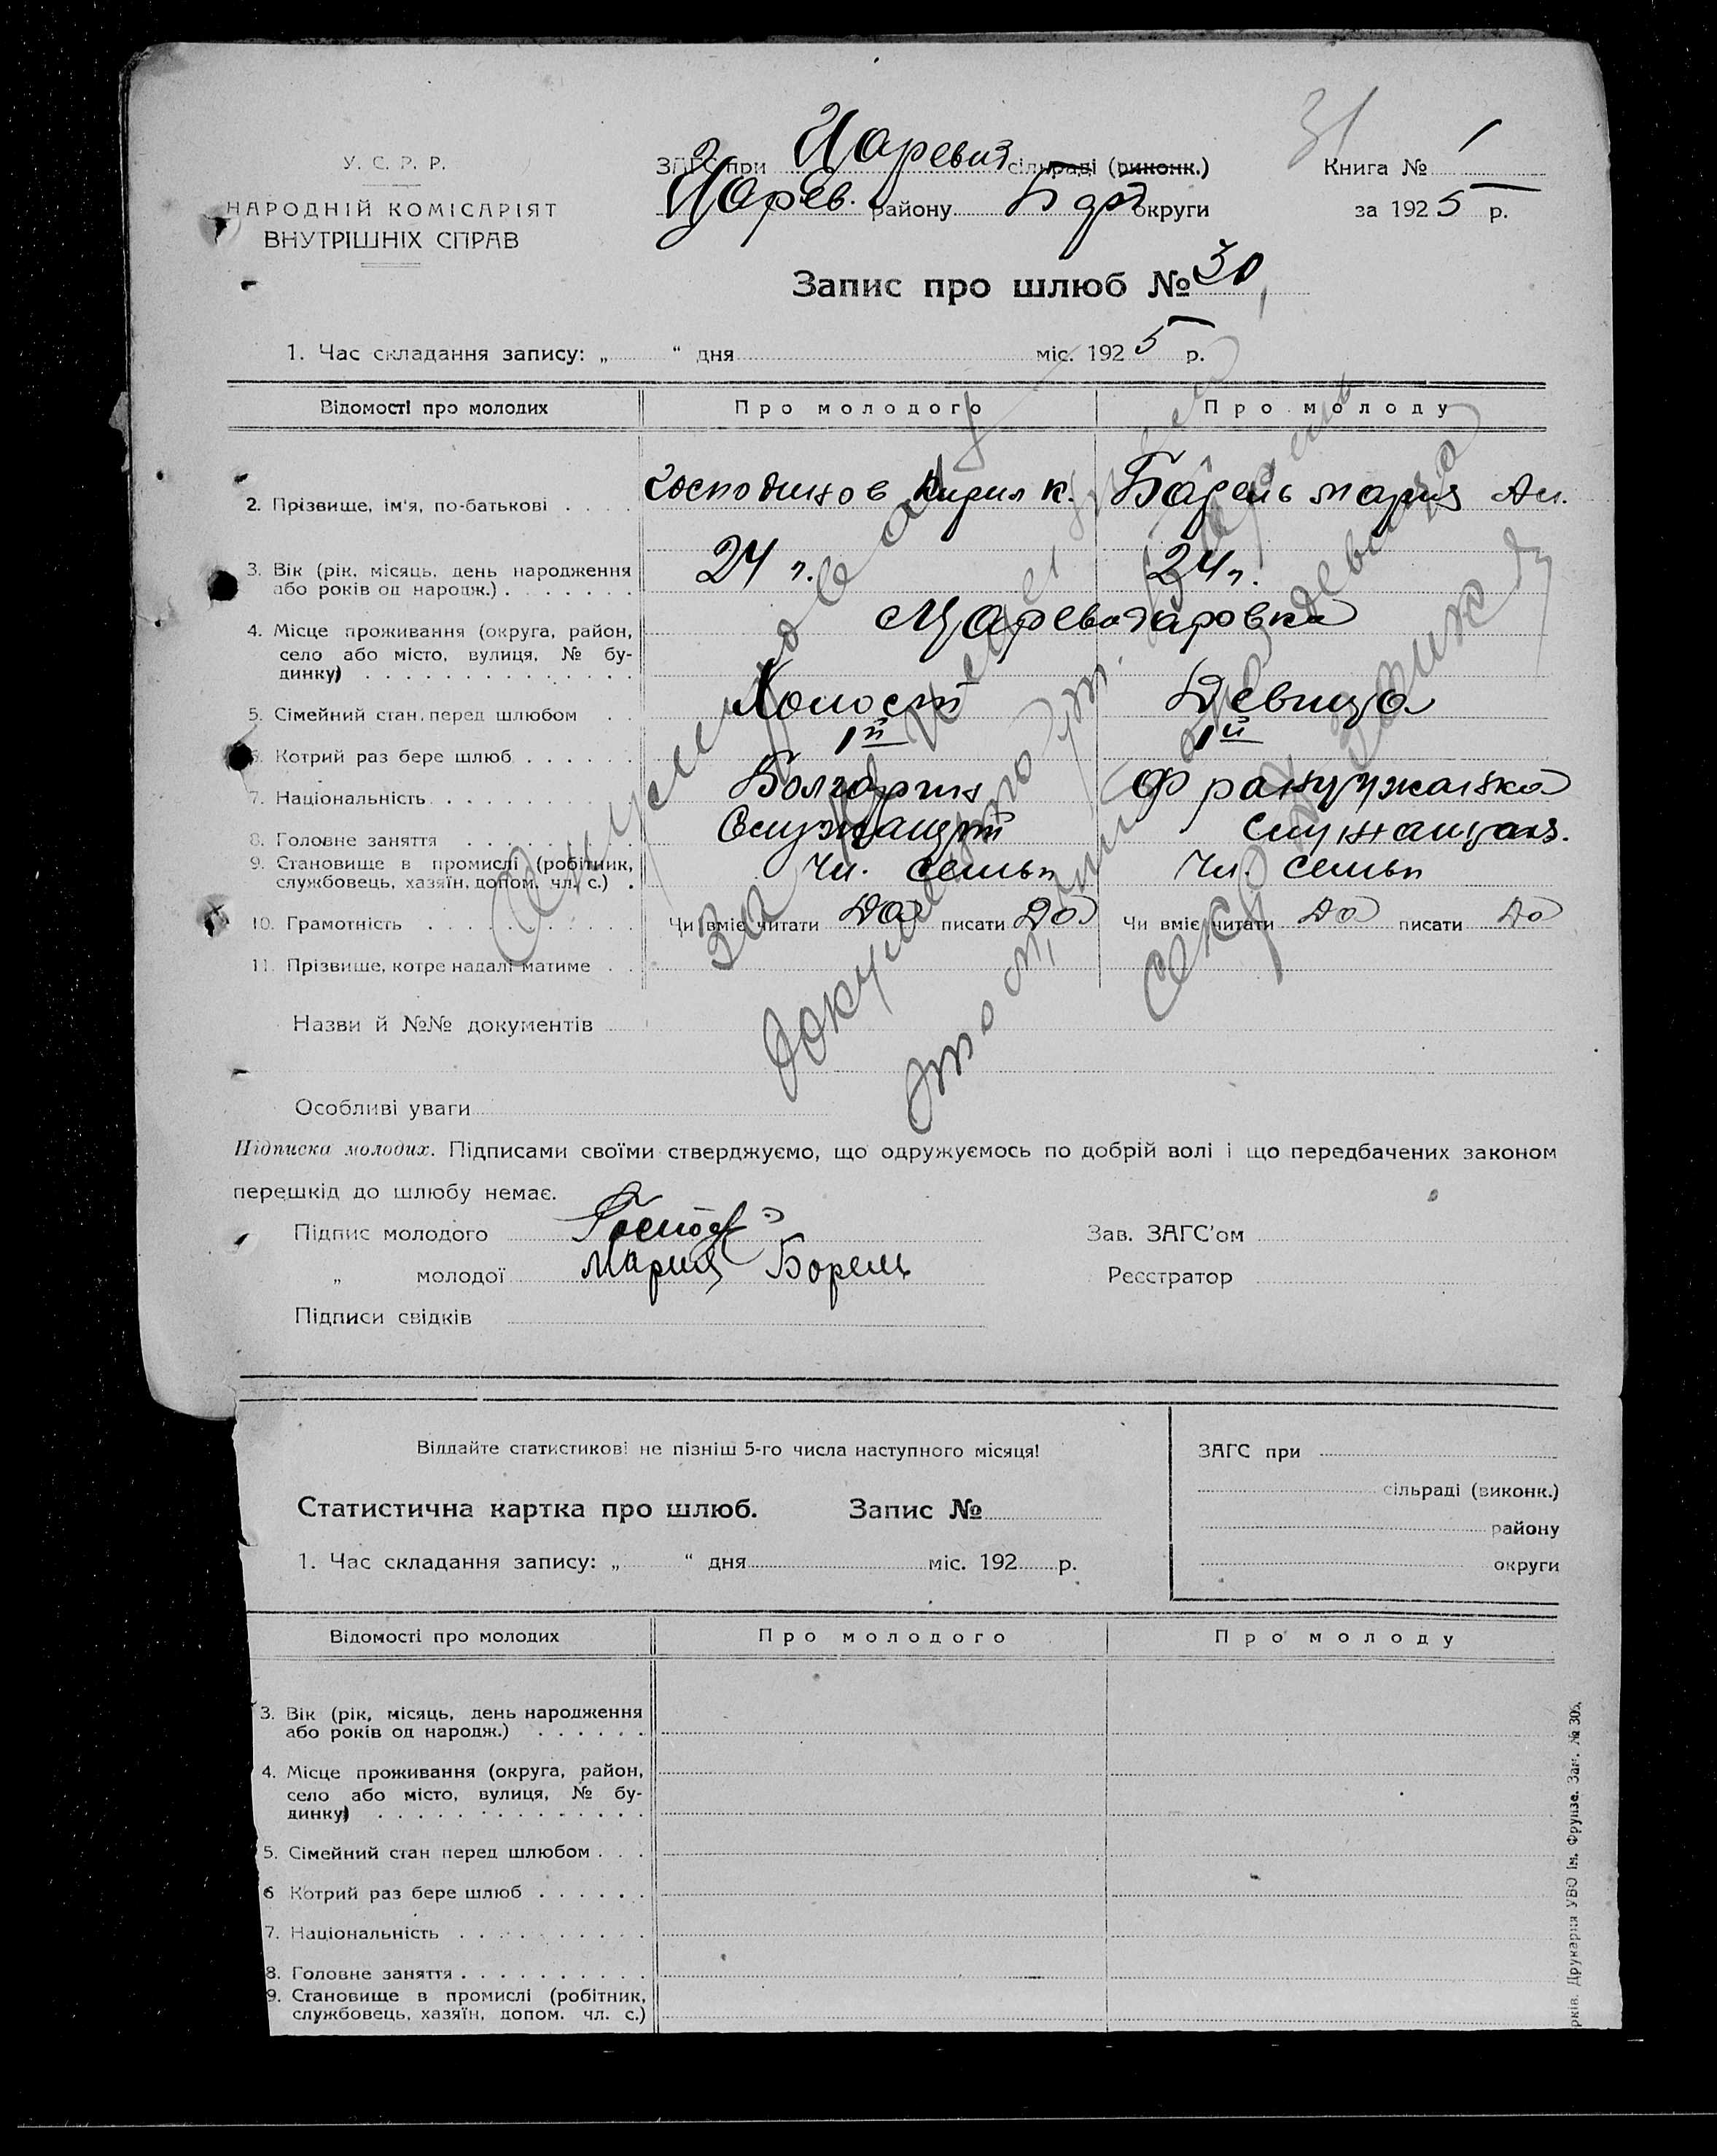 31
У. С. Р. Р.
НАРОДНІЙ КОМІСАРІЯТ
ВНУТРІШНІХ СПРАВ
ЗАГС при сільраді (виконк.)
Царев. району округи
Книга № 1
за 1925 р.
Запис про шлюб № 30
1. Час складання запису: „ “ дня міс. 1925 р.
Відомості про молодих Про молодого Про молоду
2. Прізвище, ім'я, по-батькові Господинов Кирил К. Борель Мария Ан.
3. Вік (рік, місяць, день народження 24 г. 24 г.
або років од народж.)
4. Місце проживання (округа, район, Цареводаровка
село або місто, вулиця, № бу-
динку)
5. Сімейний стан перед шлюбом Холост Девица
6. Котрий раз бере шлюб 1й 1й
7. Національність Болгарин Француженка
8. Головне заняття Служащий служащая.
9. Становище в промислі (робітник, Чл. семьи Чл. семьи
службовець, хазяїн, допом. чл. с.)
10. Грамотність Чи вміє читати Да писати Да Чи вміє читати Да писати Да
11. Прізвище, котре надалі матиме
Назви й №№ документів
Особливі уваги
Підписка молодих. Підписами своїми стверджуємо, що одружуємось по добрій волі і що передбачених законом
перешкід до шлюбу немає.
Підпис молодого Зав. ЗАГС'ом
„ молодої Мария Борель Реєстратор
Підписи свідків
Віддайте статистикові не пізніш 5-го числа наступного місяця!
ЗАГС при
сільраді (виконк.)
району
округи
Статистична картка про шлюб. Запис №
1. Час складання запису: „ “ дня міс. 192 р.
Відомості про молодих Про молодого Про молоду
3. Вік (рік, місяць, день народження
або років од народж.)
4. Місце проживання (округа, район,
село або місто, вулиця, № бу-
динку)
5. Сімейний стан перед шлюбом
6 Котрий раз бере шлюб
7. Національність
8. Головне заняття
9. Становище в промислі (робітник,
службовець, хазяїн, допом. чл. с.)
рків. Друкарня УВО ім. Фрунзе. Зам. № 305.